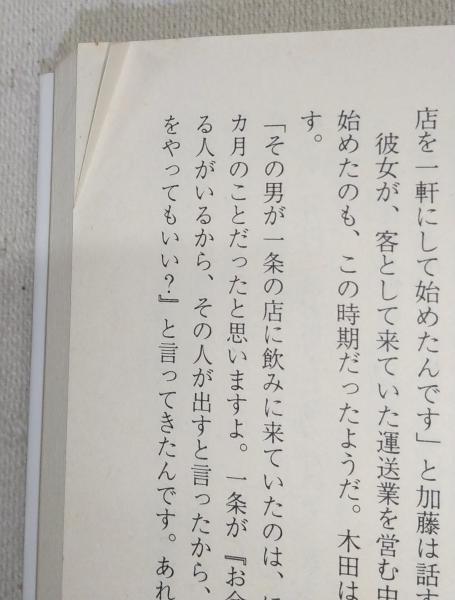 店を一軒にして始めたんです」と加藤は話す
彼女が、客として来ていた運送業を営む中
始めたのも、この時期だったようだ。木田は
す。
「その男が一条の店に飲みに来ていたのは、
カ月のことだったと思いますよ。一条が『お金
る人がいるから、その人が出すと言ったから、
をやってもいい?』と言ってきたんです。あれ